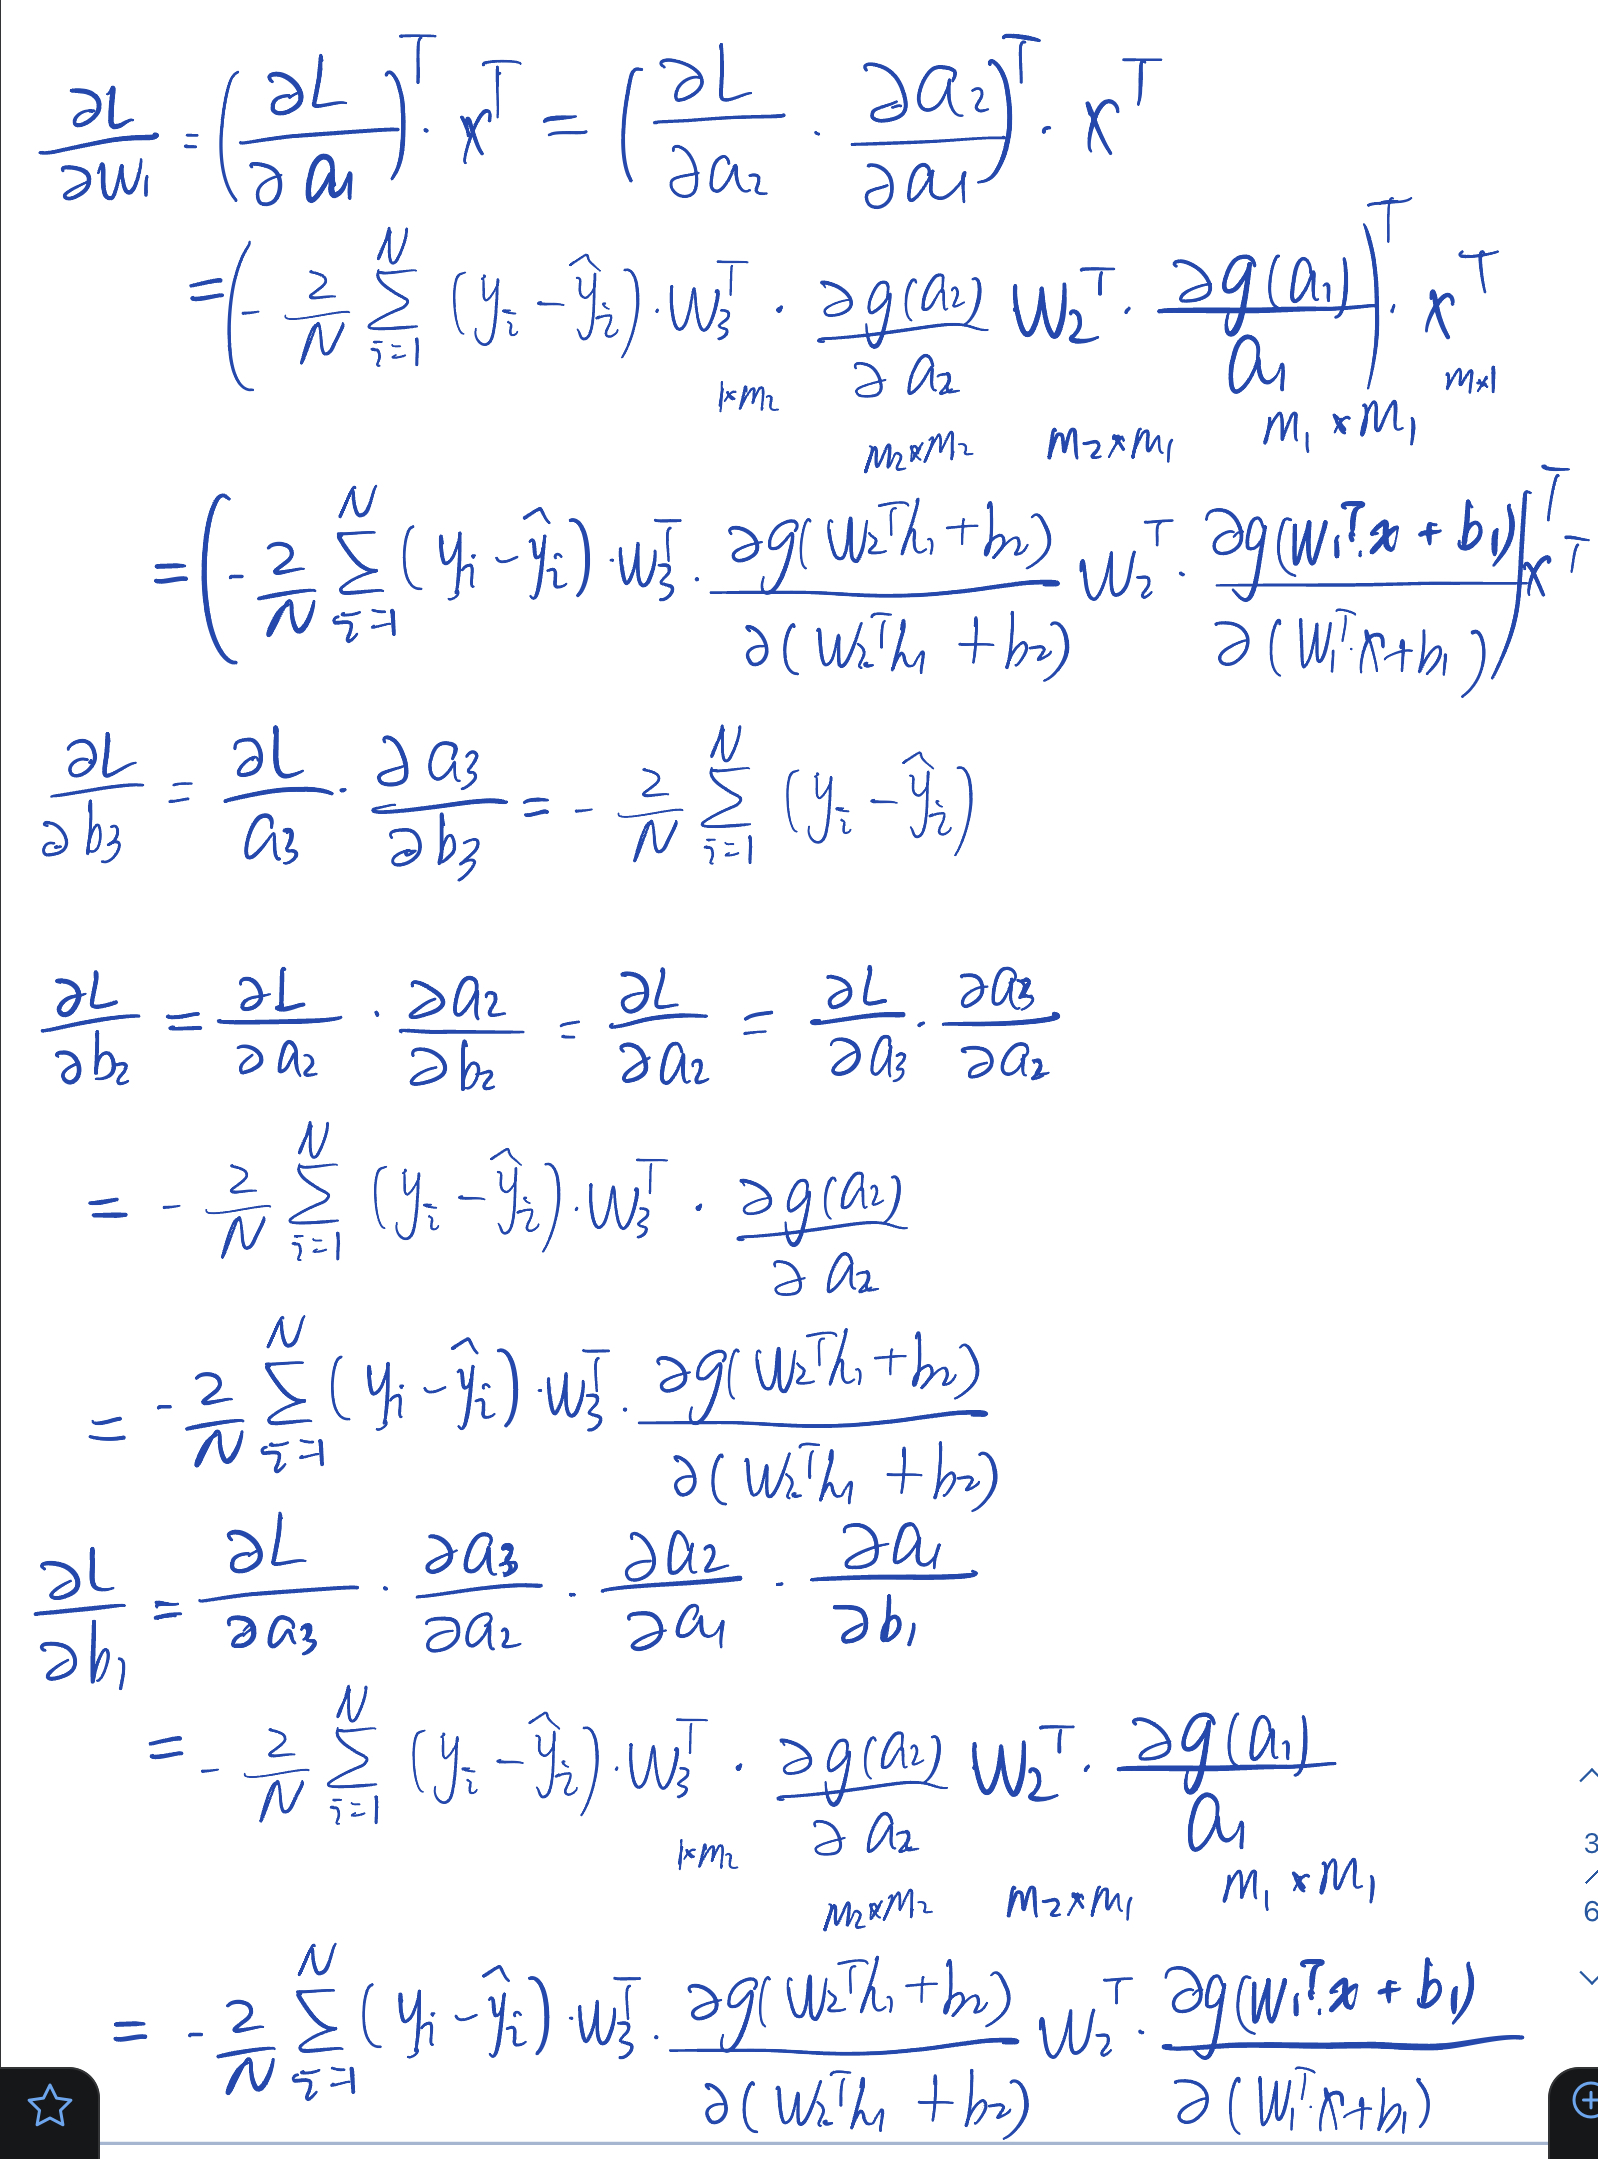 ∂L/∂W₁ = (∂L/∂a₁)ᵀ · xᵀ = (∂L/∂a₂ · ∂a₂/∂a₁)ᵀ · xᵀ
= (- 2/N ∑_{i=1}^{N} (yᵢ - ŷᵢ) · W₃ᵀ · ∂g(a₂)/∂a₂ W₂ᵀ · ∂g(a₁)/a₁)ᵀ · xᵀ
1×m₂ m₂×m₂ m₂×m₁ m₁×m₁ m×1
= (- 2/N ∑_{i=1}^{N} (yᵢ - ŷᵢ) · W₃ᵀ · ∂g(W₂ᵀh₁ + b₂)/∂(W₂ᵀh₁ + b₂) W₂ᵀ · ∂g(W₁ᵀ·x + b₁)/∂(W₁ᵀ·x + b₁))ᵀ xᵀ
∂L/∂b₃ = ∂L/a₃ · ∂a₃/∂b₃ = - 2/N ∑_{i=1}^{N} (yᵢ - ŷᵢ)
∂L/∂b₂ = ∂L/∂a₂ · ∂a₂/∂b₂ = ∂L/∂a₂ = ∂L/∂a₃ · ∂a₃/∂a₂
= - 2/N ∑_{i=1}^{N} (yᵢ - ŷᵢ) · W₃ᵀ · ∂g(a₂)/∂a₂
= - 2/N ∑_{i=1}^{N} (yᵢ - ŷᵢ) · W₃ᵀ · ∂g(W₂ᵀh₁ + b₂)/∂(W₂ᵀh₁ + b₂)
∂L/∂b₁ = ∂L/∂a₃ · ∂a₃/∂a₂ · ∂a₂/∂a₁ · ∂a₁/∂b₁
= - 2/N ∑_{i=1}^{N} (yᵢ - ŷᵢ) · W₃ᵀ · ∂g(a₂)/∂a₂ W₂ᵀ · ∂g(a₁)/a₁
1×m₂ m₂×m₂ m₂×m₁ m₁×m₁
= - 2/N ∑_{i=1}^{N} (yᵢ - ŷᵢ) · W₃ᵀ · ∂g(W₂ᵀh₁ + b₂)/∂(W₂ᵀh₁ + b₂) W₂ᵀ · ∂g(W₁ᵀ·x + b₁)/∂(W₁ᵀ·x + b₁)
3
/
6